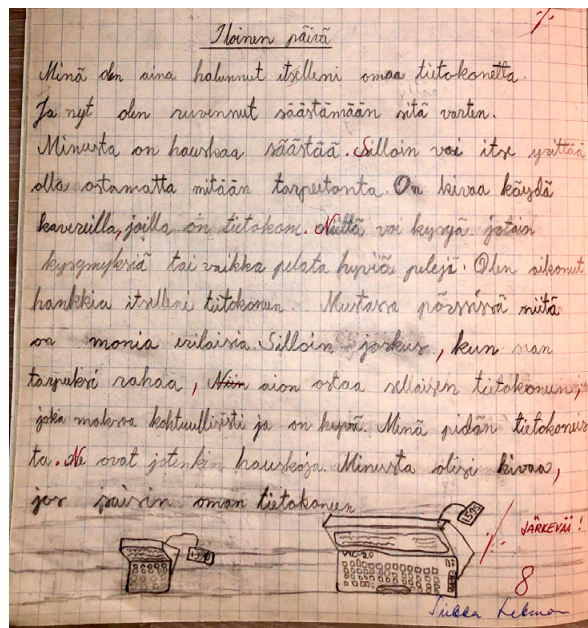 Iloinen päivä
Minä olen aina halunnut itselleni omaa tietokonetta.
Ja nyt olen ruvennut säästämään sitä varten.
Minusta on hauskaa säästää. Silloin voi itse yrittää
olla ostamatta mitään tarpeetonta. On kivaa käydä
kavereilla, joilla on tietokone. Niiltä voi kysyä jotain
kysymyksiä tai vaikka pelata hyviä pelejä. Olen aikonut
hankkia itselleni tietokoneen. Mustassa pörssissä niitä
on monia erilaisia. Silloin joskus, kun saan
tarpeeksi rahaa, Niin aion ostaa sellaisen tietokoneen,
joka maksaa kohtuullisesti ja on hyvä. Minä pidän tietokoneis
ta. Ne ovat jotenkin hauskoja. Minusta olisi kivaa,
jos saisin oman tietokoneen
1595
VIC-20
JÄRKEVÄÄ!
8